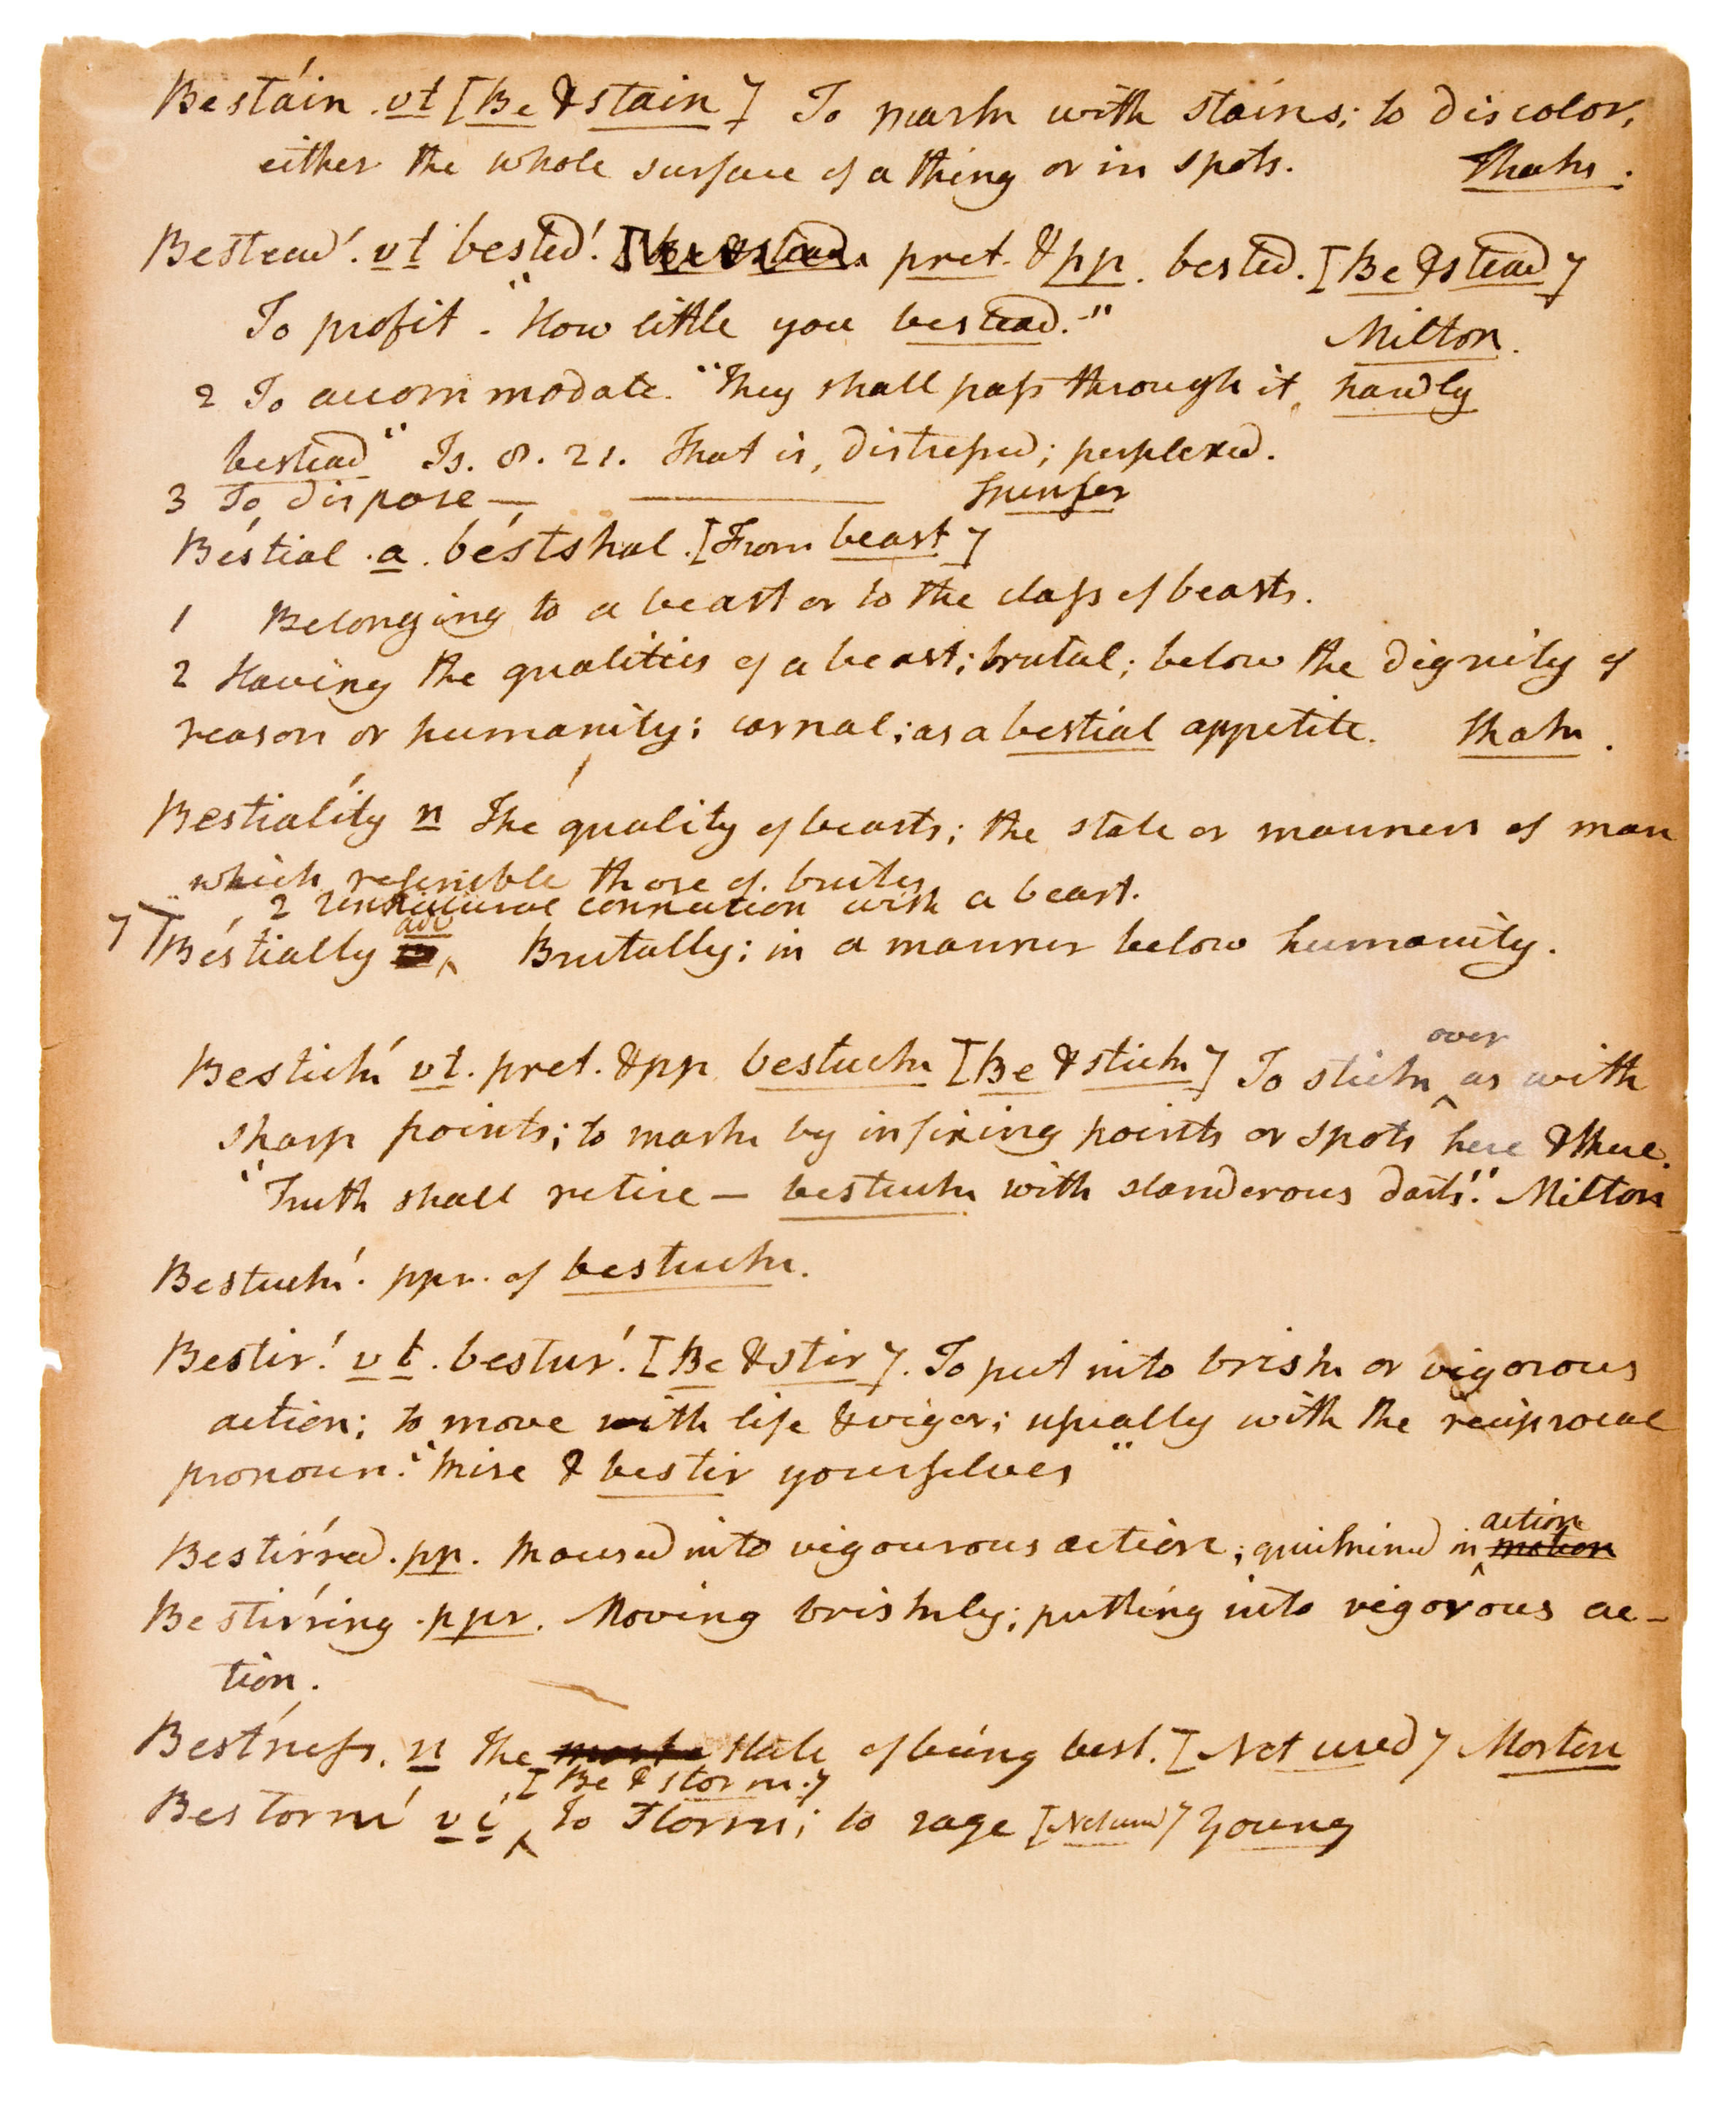 Bestáin. vt [Be & stain] To mark with stains; to discolor,
either the whole surface of a thing or in spots. Shaks.
Bestead'. vt bested'. pret. & pp. bested. [Be & stead]
To profit. "How little you bestead." Milton.
2 To accommodate. "They shall paſs through it, hardly
bestead" Is. 8. 21. That is, distreſsed; perplexed.
3 To dispose — Spenser
Béstial. a. béstshal. [From beast]
1 Belonging to a beast or to the claſs of beasts.
2 Having the qualities of a beast; brutal; below the dignity of
reason or humanity; carnal; as a bestial appetite. Shak.
Bestiálity n The quality of beasts; the state or manners of man
which resemble those of brutes
2 Unnatural connection with a beast.
adv
Béstially Brutally; in a manner below humanity.
over
Bestick' vt. pret. & pp bestuck [Be & stick] To stick as with
sharp points; to mark by infixing points or spots here & there.
"Truth shall retire — bestuck with slanderous darts." Milton
Bestuck'. ppr. of bestuck.
Bestir'. vt. bestur'. [Be & stir]. To put into brisk or vigorous
action; to move with life & vigor; usually with the reciprocal
pronoun. "Rise & bestir yourselves"
action
Bestir'red. pp. Roused into vigourous action; quickened in motion
Bestir'ring. ppr. Moving briskly; putting into vigorous ac-
tion.
Best'neſs. n The state of being best. [Not used] Morton
[Be & storm.]
Bestorm' vi To storm; to rage [Not used] Young